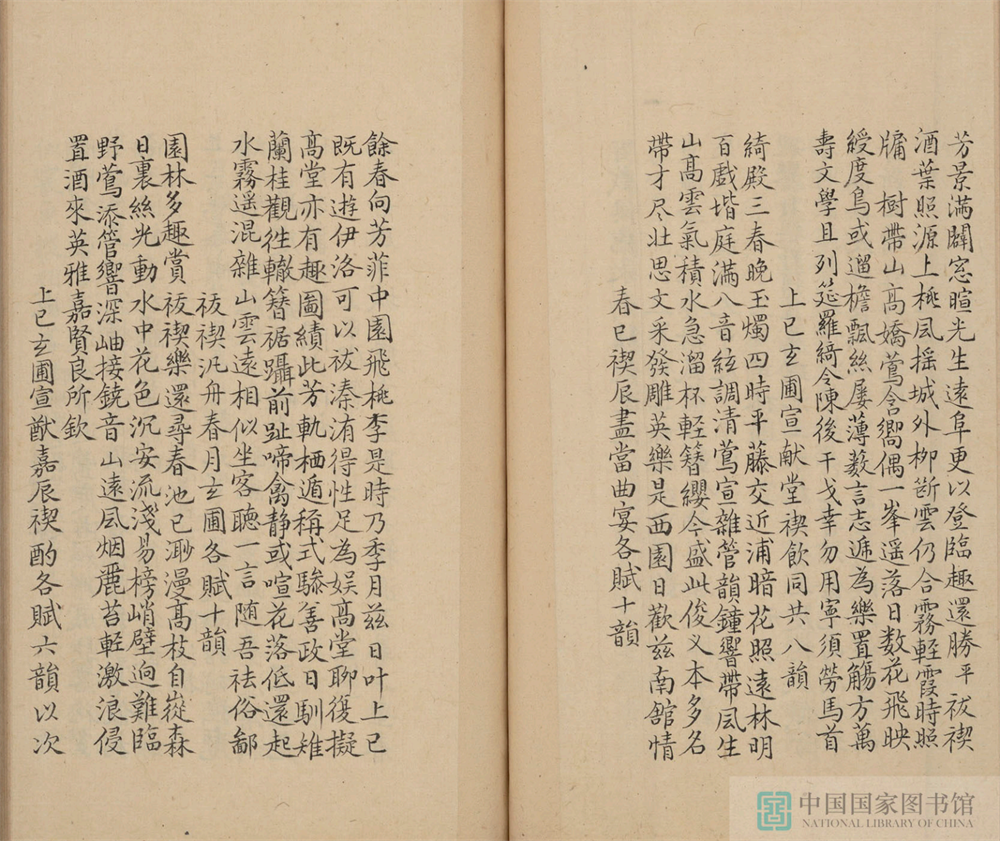 芳景滿闢窓暄光生遠阜更以登臨趣還勝平袚禊
酒葉照源上桃凨摇城外柳斷雲仍合霧輕霞時照
牖　樹帶山髙嬌鶯含嚮偶一峯遥落日数花飛映
綬度鳥或遛檐飄絲屡薄藪言志遞為樂置觴方萬
壽文學且列筵羅綺令陳後干戈幸勿用寧須勞馬首
上巳玄圃宣献堂禊飲同共八韻
綺殿三春晚玉燭四時平藤交近浦暗花照遠林明
百戲堦庭滿八音絃調清鶯宣雜管韻鐘響帶凨生
山髙雲氣積水急溜杯輕簮纓今盛此俊乂本多名
帶才尽壮思文采發雕英樂是西園日歡兹南舘情
春巳禊辰盡當曲宴各賦十韻
餘春向芳菲中園飛桃李是時乃季月兹日叶上巳
既有遊伊洛可以袚溱洧得性足為娱髙堂聊復擬
髙堂亦有趣圖績此芳軌栖遁稱式驂善政日馴雉
蘭桂觀徃轍簮裾躡前趾啼禽静或喧花落低還起
水霧遥混雜山雲遠相似坐客聽一言随吾袪俗鄙
袚禊汎舟春月玄圃各賦十韻
園林多趣賞袚禊樂還尋春池已渺漫髙枝自嵸森
日裏絲光動水中花色沉安流淺易榜峭壁逈難臨
野鶯添管響深岫接鐃音山遠凨烟麗苔輕激浪侵
置酒來英雅嘉賢良所欽
上巳玄圃宣猷嘉辰禊酌各賦六韻以次
中国国家图书馆
NATIONAL LIBRARY OF CHINA